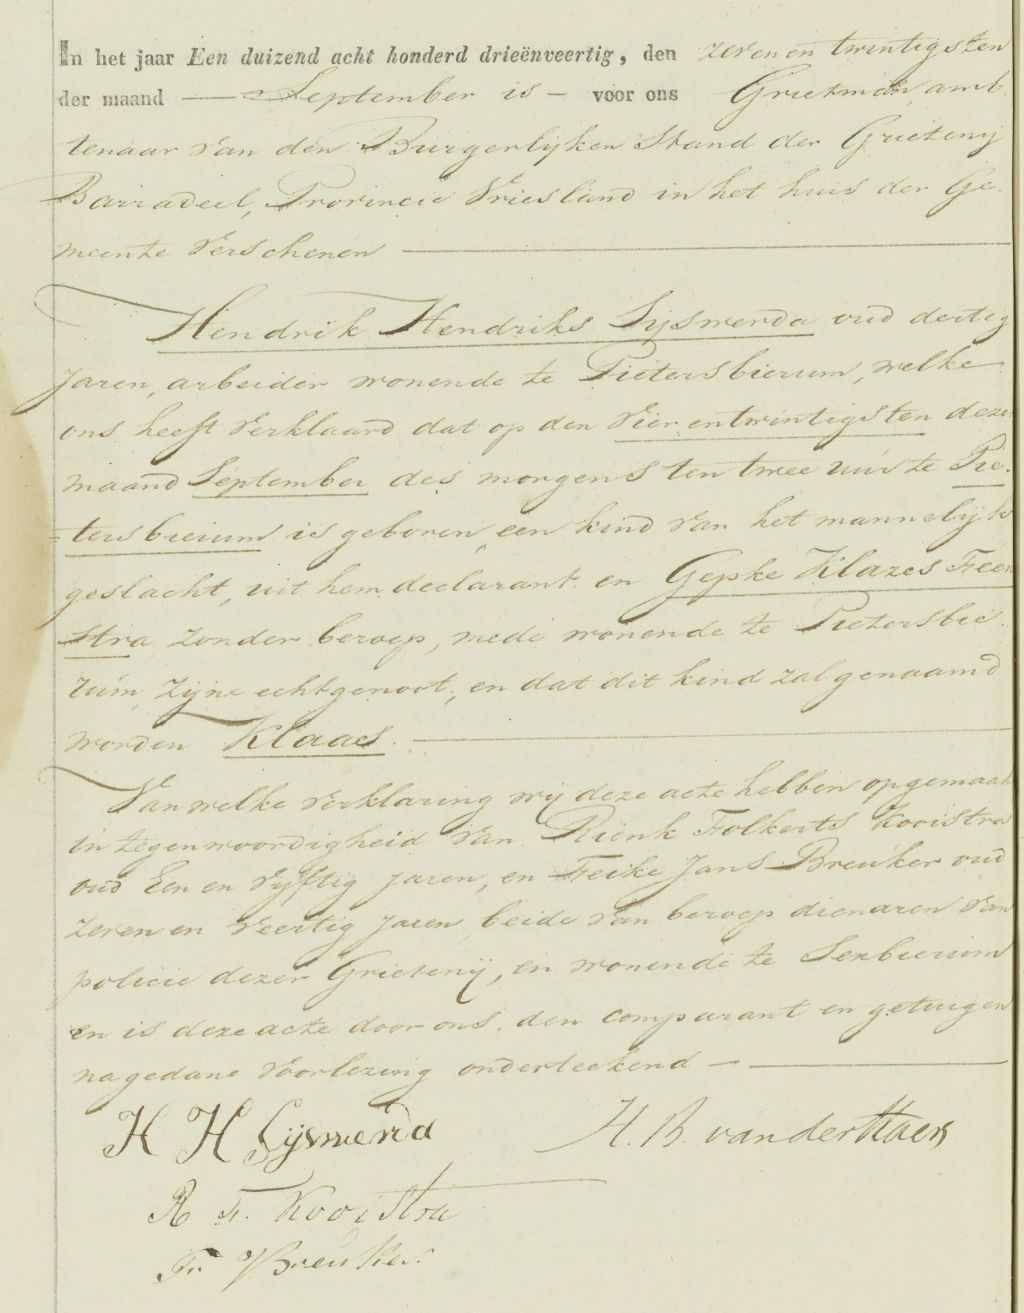 In het jaar Een duizend acht honderd drieënveertig, den zeven en twintigsten
der maand September is voor ons Grietman, amb
tenaar van den Burgerlyken Stand der Grietenij
Barradeel, Provincie Vriesland in het huis der Ge-
meente verschenen
Hendrik Hendriks Syswerda oud dertig
Jaren, arbeider wonende te Pietersbierum, welke
ons heeft verklaard dat op den vier entwintigsten dezer
maand September des morgens ten twee uur te Pie-
tersbierum is geboren een kind van het mannelijk
geslacht, uit hem declarant en Gepke Klazes Feen
stra zonder beroep, mede wonende te Pietersbie
rum, zijne echtgenoot, en dat dit kind zal genaamd
worden Klaas.
Van welke verklaring wij deze acte hebben opgemaakt
in tegenwoordigheid van Rienk Folkerts Kooistra
oud Een en vyftig jaren, en Feike Jans Breuker oud
zeven en veertig jaren, beide van beroep dienaren van
policie dezer Grietenij, en wonende te Sexbierum
en is deze acte door ons, den comparant en getuigen
na gedane voorlezing onderteekend
H H Sijswerda H. B. van der Haer
R F. Kooistra
F. Breuker